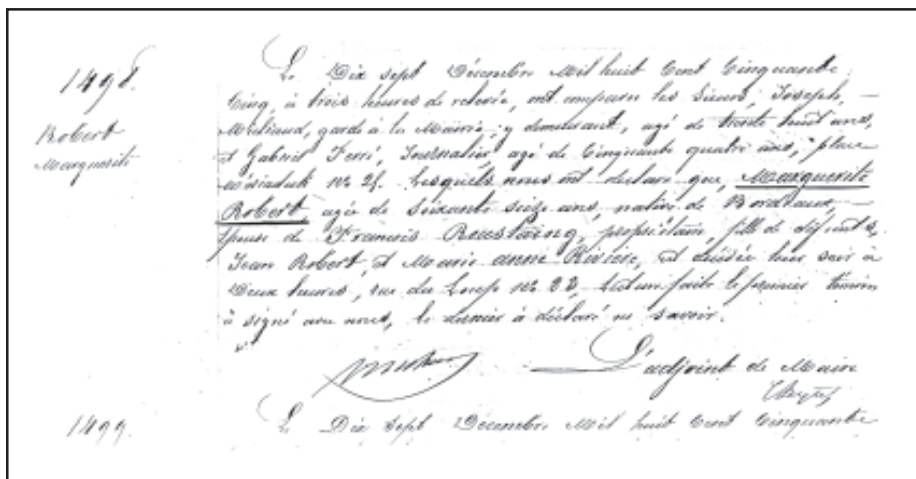 1498.
Robert
Marguerite
Le Dix sept Décembre Mil huit Cent Cinquante
Cinq, à trois heures de relevée, ont comparu les Sieurs, Joseph, —
garde à la Mairie, y demeurant, agé de trente huit ans,
et Gabriel Ferré, Journalier agé de Cinquante quatre ans, place
Lesquels nous ont declaré que, Marguerite
Robert, agée de Soixante seize ans, native de Bordeaux, —
Epouse de François Roustaing, propriétaire, fille de défunts,
Jean Robert, et Marie anne Rivière, est décédée hier soir à
Deux heures, rue du Loup No 22, Lecture faite le premier témoin
à signé avec nous, le dernier à déclaré ne savoir.
L'adjoint de Maire
1499.
Le Dix Sept Décembre Mil huit Cent Cinquante